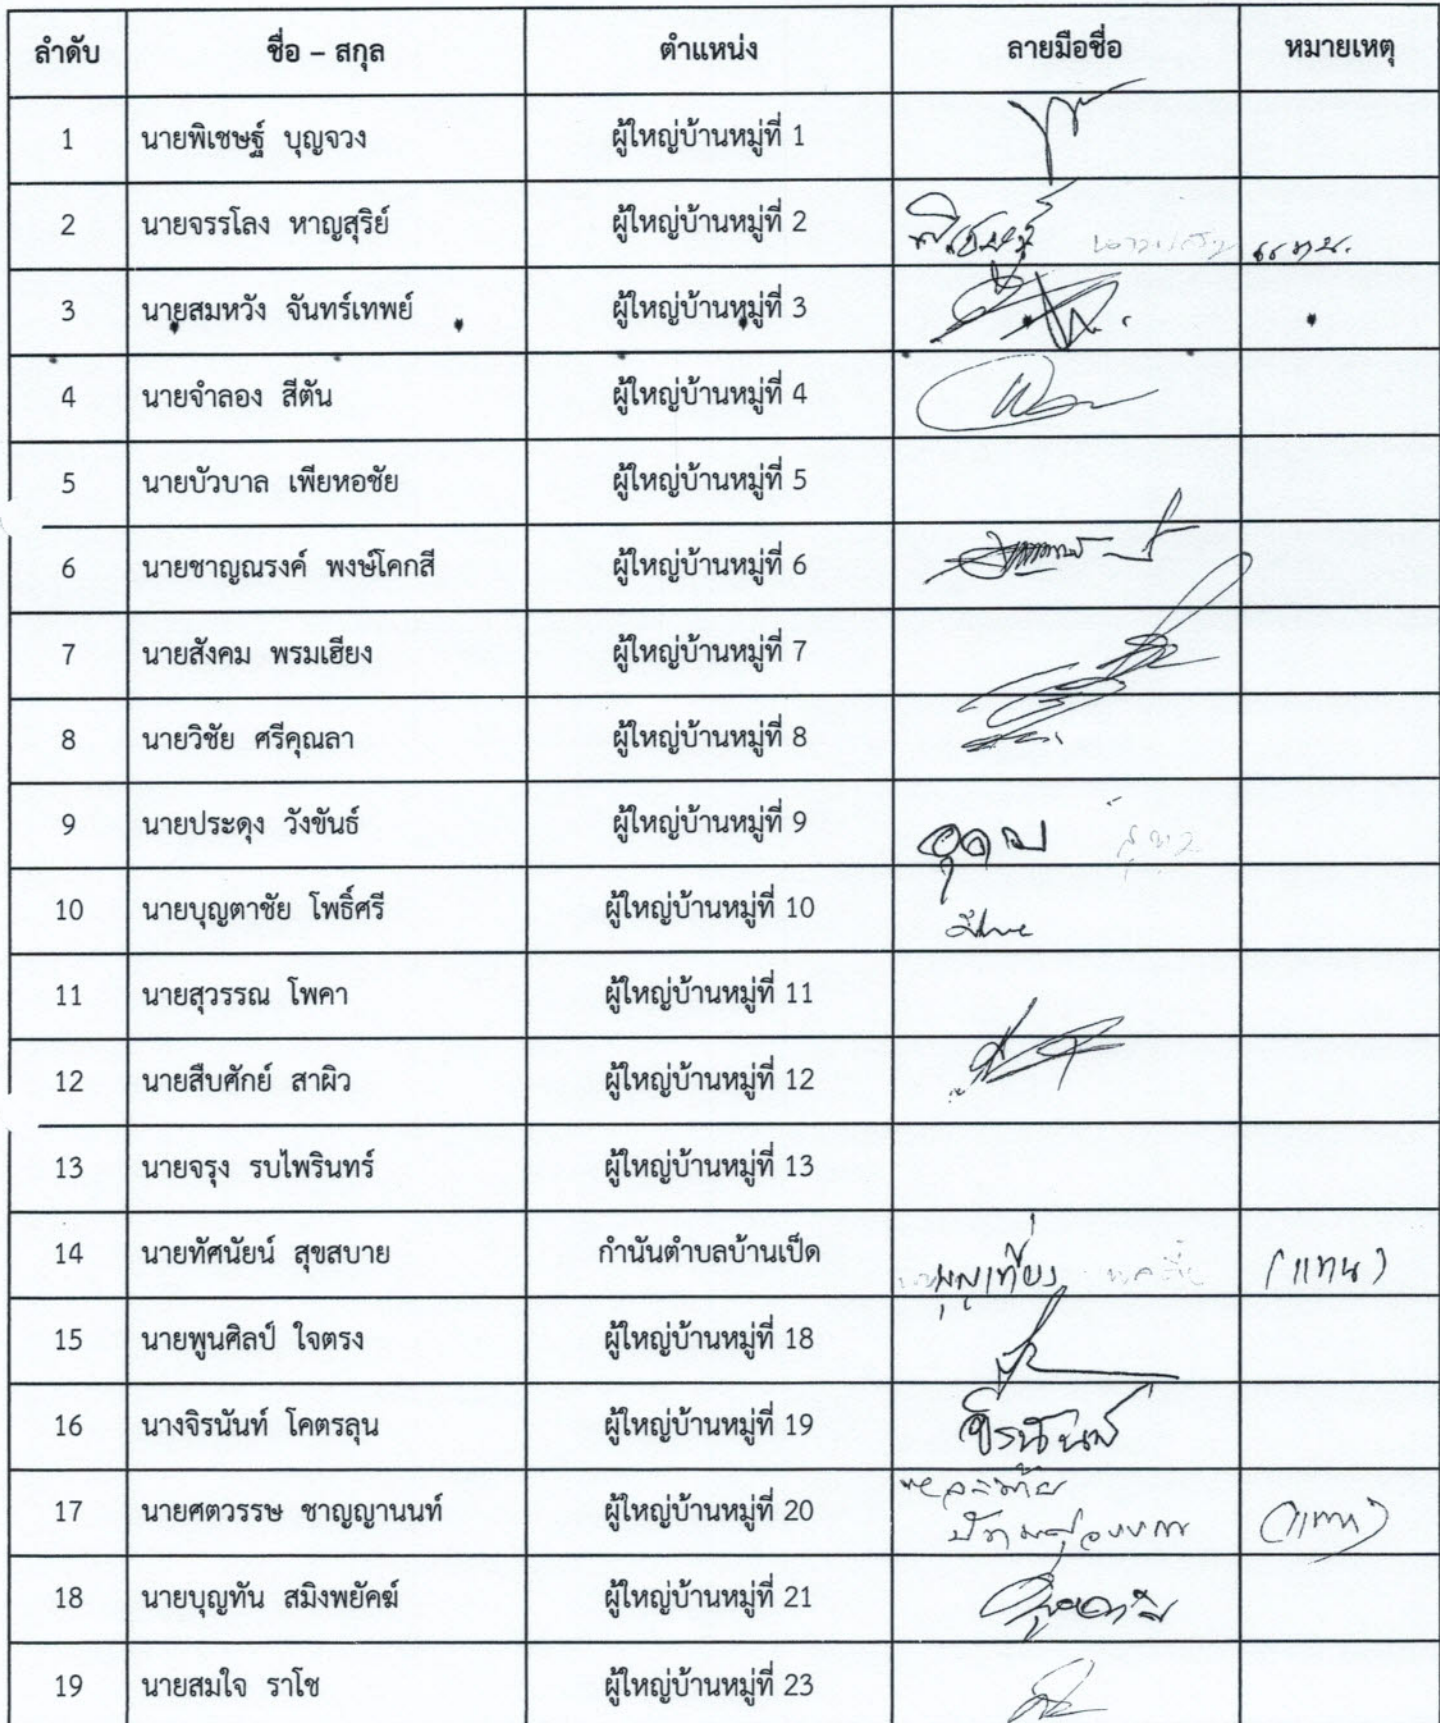 ลำดับ ชื่อ – สกุล ตำแหน่ง ลายมือชื่อ หมายเหตุ
1 นายพิเชษฐ์ บุญจวง ผู้ใหญ่บ้านหมู่ที่ 1
2 นายจรรโลง หาญสุริย์ ผู้ใหญ่บ้านหมู่ที่ 2 แทน.
3 นายสมหวัง จันทร์เทพย์ ผู้ใหญ่บ้านหมู่ที่ 3
4 นายจำลอง สีตัน ผู้ใหญ่บ้านหมู่ที่ 4
5 นายบัวบาล เพียหอชัย ผู้ใหญ่บ้านหมู่ที่ 5
6 นายชาญณรงค์ พงษ์โคกสี ผู้ใหญ่บ้านหมู่ที่ 6
7 นายสังคม พรมเฮียง ผู้ใหญ่บ้านหมู่ที่ 7
8 นายวิชัย ศรีคุณลา ผู้ใหญ่บ้านหมู่ที่ 8
9 นายประดุง วังขันธ์ ผู้ใหญ่บ้านหมู่ที่ 9
10 นายบุญตาชัย โพธิ์ศรี ผู้ใหญ่บ้านหมู่ที่ 10
11 นายสุวรรณ โพคา ผู้ใหญ่บ้านหมู่ที่ 11
12 นายสืบศักย์ สาผิว ผู้ใหญ่บ้านหมู่ที่ 12
13 นายจรุง รบไพรินทร์ ผู้ใหญ่บ้านหมู่ที่ 13
14 นายทัศนัยน์ สุขสบาย กำนันตำบลบ้านเป็ด (แทน)
15 นายพูนศิลป์ ใจตรง ผู้ใหญ่บ้านหมู่ที่ 18
16 นางจิรนันท์ โคตรลุน ผู้ใหญ่บ้านหมู่ที่ 19 จิรนันท์
17 นายศตวรรษ ชาญญานนท์ ผู้ใหญ่บ้านหมู่ที่ 20 (แทน)
18 นายบุญทัน สมิงพยัคฆ์ ผู้ใหญ่บ้านหมู่ที่ 21
19 นายสมใจ ราโช ผู้ใหญ่บ้านหมู่ที่ 23